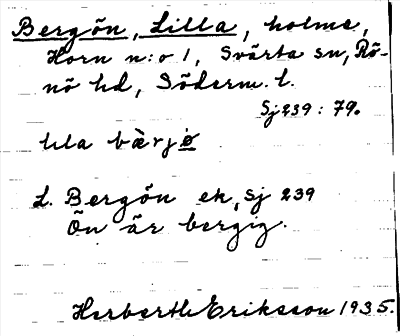 Bergön, Lilla, holme,
Horn n:o 1, Svärta sn, Rö-
nö hd, Söderm. l.
Sj 239 : 79.
lila bærjø
L. Bergön ek, Sj 239
Ön är bergig.
Herberth Eriksson 1935.